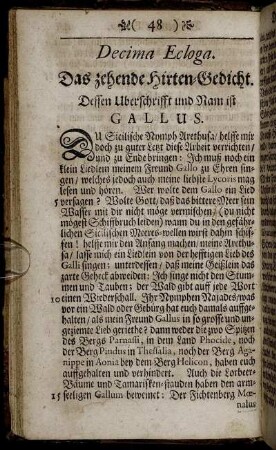 ( 48 )
Decima Ecloga.
Das zehende Hirten-Gedicht.
Dessen Uberschrifft und Nam ist
GALLUS.
DU Sicilische Nymph Arethusa/ helffe mir
doch zu guter Letzt diese Arbeit verrichten/
und zu Ende bringen: Ich muß noch ein
klein Liedlein meinem Freund Gallo zu Ehren sin-
gen/ welches jedoch auch meine liebste Lycoris mag
lesen und hören. Wer wolte dem Gallo ein Lied
5 versagen? Wolte Gott/ daß das bittere Meer sein
Wasser mit dir nicht möge vermischen/ (du nicht
mögest Schiffbruch leiden) wann du in den gefähr-
lichen Sicilischen Meeres-wellen wirst dahin schif-
fen! helffe mir den Anfang machen/ meine Arethu-
sa/ lasse mich ein Liedlein von der hefftigen Lieb des
Galli singen: unterdessen/ daß meine Geißlein das
zarte Geheck abweiden: Ich singe nicht den Stum-
men und Tauben; der Wald gibt auff jede Wort
10 einen Wiederschall. Ihr Nymphen Najades/ was
vor ein Wald oder Gebürg hat euch damals auffge-
halten/ als mein Freund Gallus in so grosse und un-
geziemte Lieb geriethe? dann weder die zwo Spitzen
des Bergs Parnassi, in dem Land Phocide, noch
der Berg Pindus in Thessalia, noch der Berg Aga-
nippe in Aonia bey dem Berg Helicon, haben euch
auffgehalten und verhindert. Auch die Lorbeer-
Bäume und Tamarisken-stauden haben den arm-
15 seeligen Gallum beweinet: Der Fichtenberg Mœ-
nalus